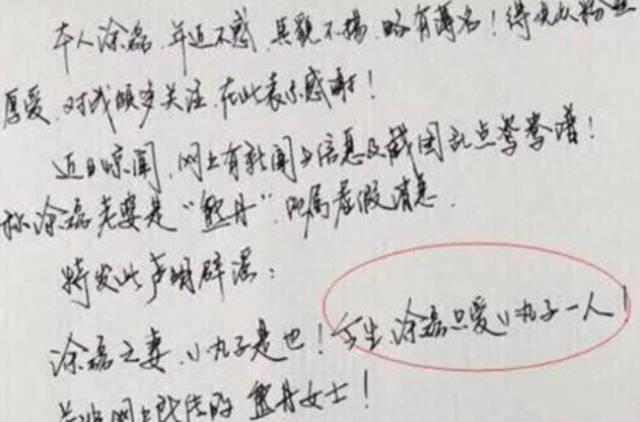 本人涂磊，年近不惑，其貌不扬，略有薄名！得众从粉丝
厚爱，对我颇多关注，在此表示感谢！
近日惊闻，网上有新闻与信息及截图乱点鸳鸯谱！
称涂磊老婆是“甄丹”，此属虚假消息。
特发此声明辟谣：
涂磊之妻，小丸子是也！今生，涂磊只爱小丸子一人！
并非网上所传的 甄丹女士！